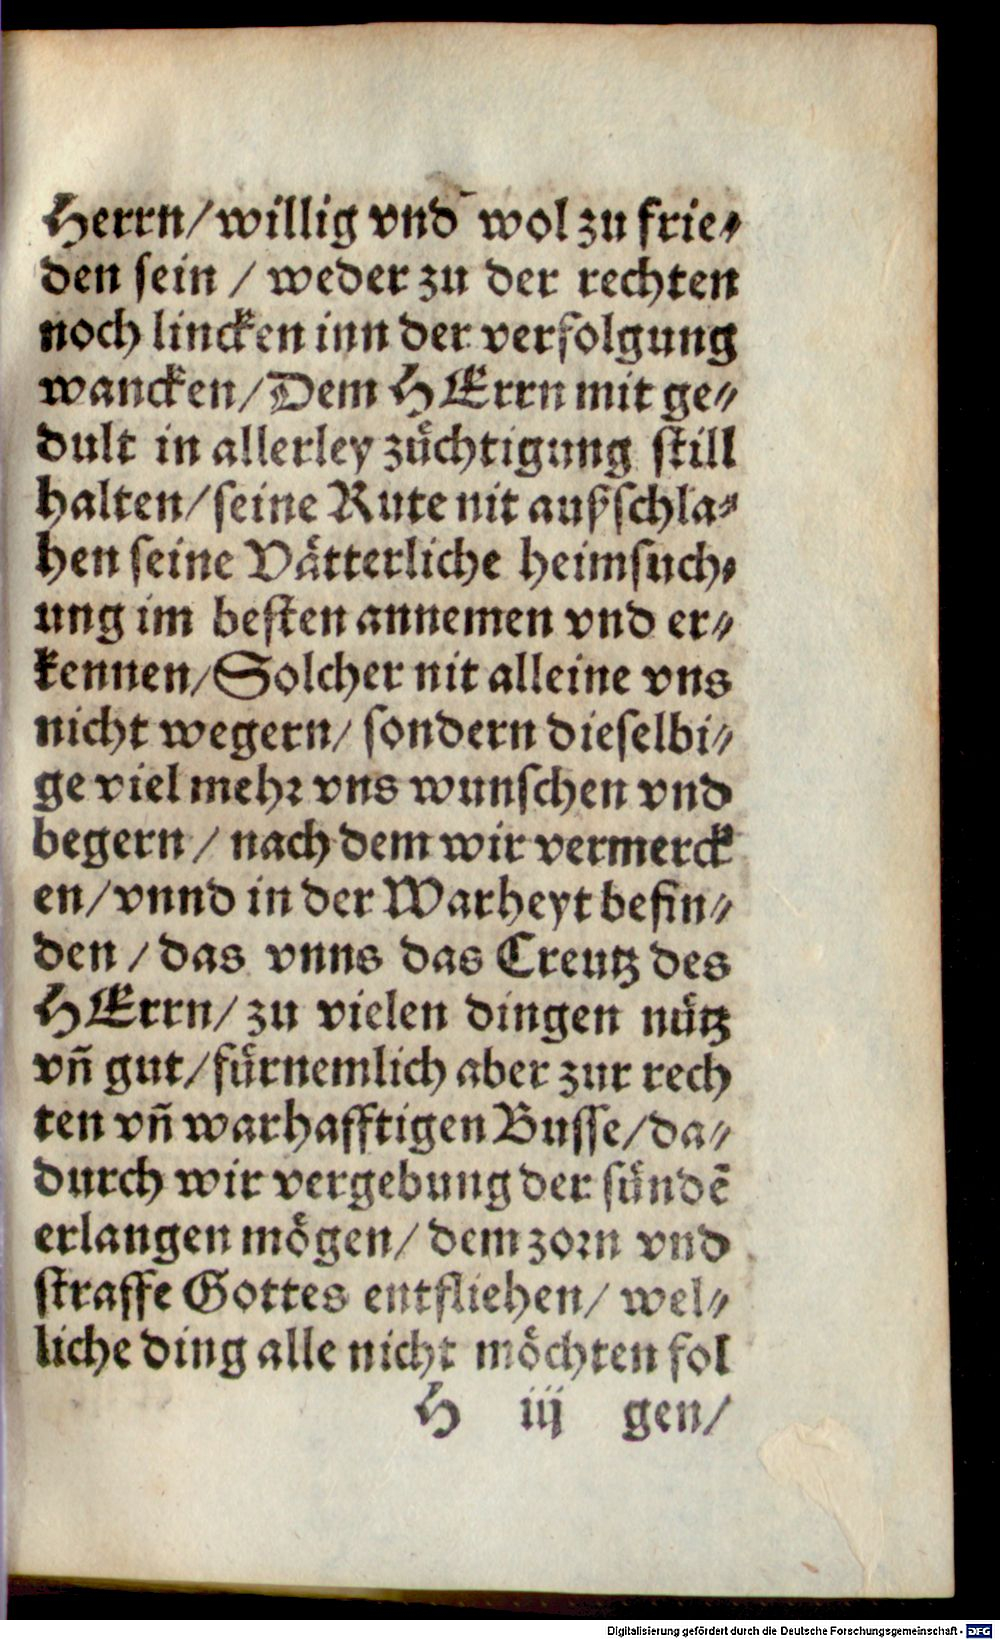 Herrn/ willig vnd wol zu frie-
den sein / weder zu der rechten
noch lincken inn der verfolgung
wancken/ Dem HErrn mit ge-
dult in allerley züchtigung still
halten/ seine Rute nit außschla-
hen seine Vätterliche heimsuch-
ung im besten annemen vnd er-
kennen/ Solcher nit alleine vns
nicht wegern/ sondern dieselbi-
ge viel mehr vns wunschen vnd
begern / nach dem wir vermerck
en/ vnnd in der Warheyt befin-
den / das vnns das Creutz des
HErrn/ zu vielen dingen nütz
vñ gut/ fürnemlich aber zur rech
ten vñ warhafftigen Busse/ da-
durch wir vergebung der sündē
erlangen mögen/ dem zorn vnd
straffe Gottes entfliehen/ wel-
liche ding alle nicht möchten fol
H iij gen/
Digitalisierung gefördert durch die Deutsche Forschungsgemeinschaft - DFG